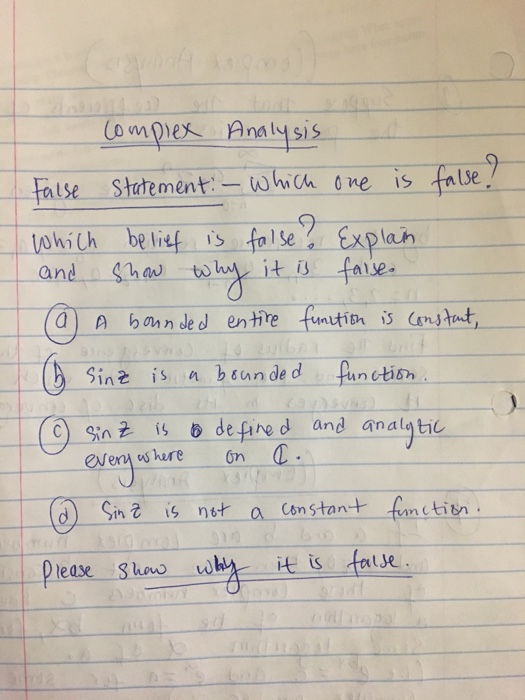 Complex Analysis
False Statement:- Which one is false?
Which belief is false? Explain
and show why it is false.
(a) A bounded entire function is constant,
(b) Sin z is a bounded function.
(c) Sin z is defined and analytic
everywhere on ℂ.
(d) Sin z is not a constant function.
Please show why it is false.